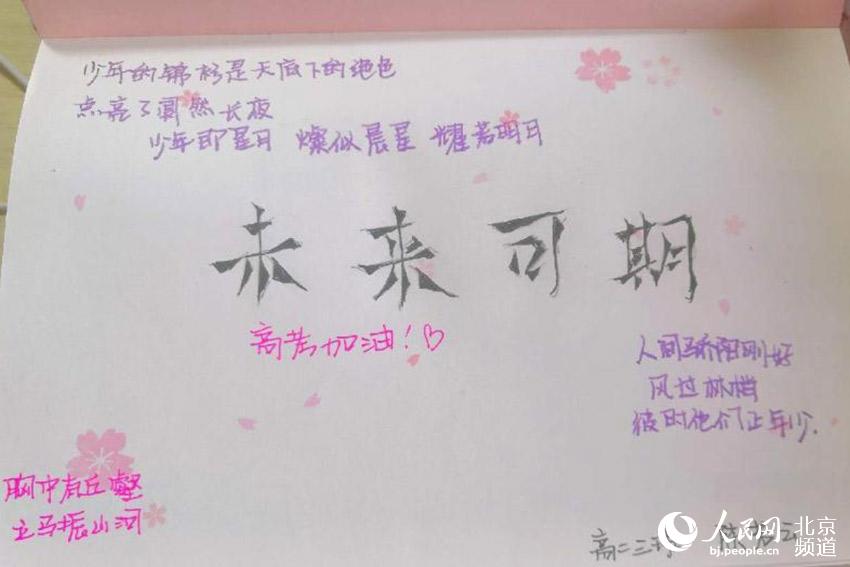 少年的锦衫是天底下的绝色
点亮了阒然长夜
少年即星月 灿似晨星 耀若明日
未来可期
高考加油!
人间骄阳刚好
风过林梢
彼时他们正年少.
胸中有丘壑
立马振山河
高二三班
人民网 北京频道
bj.people.cn